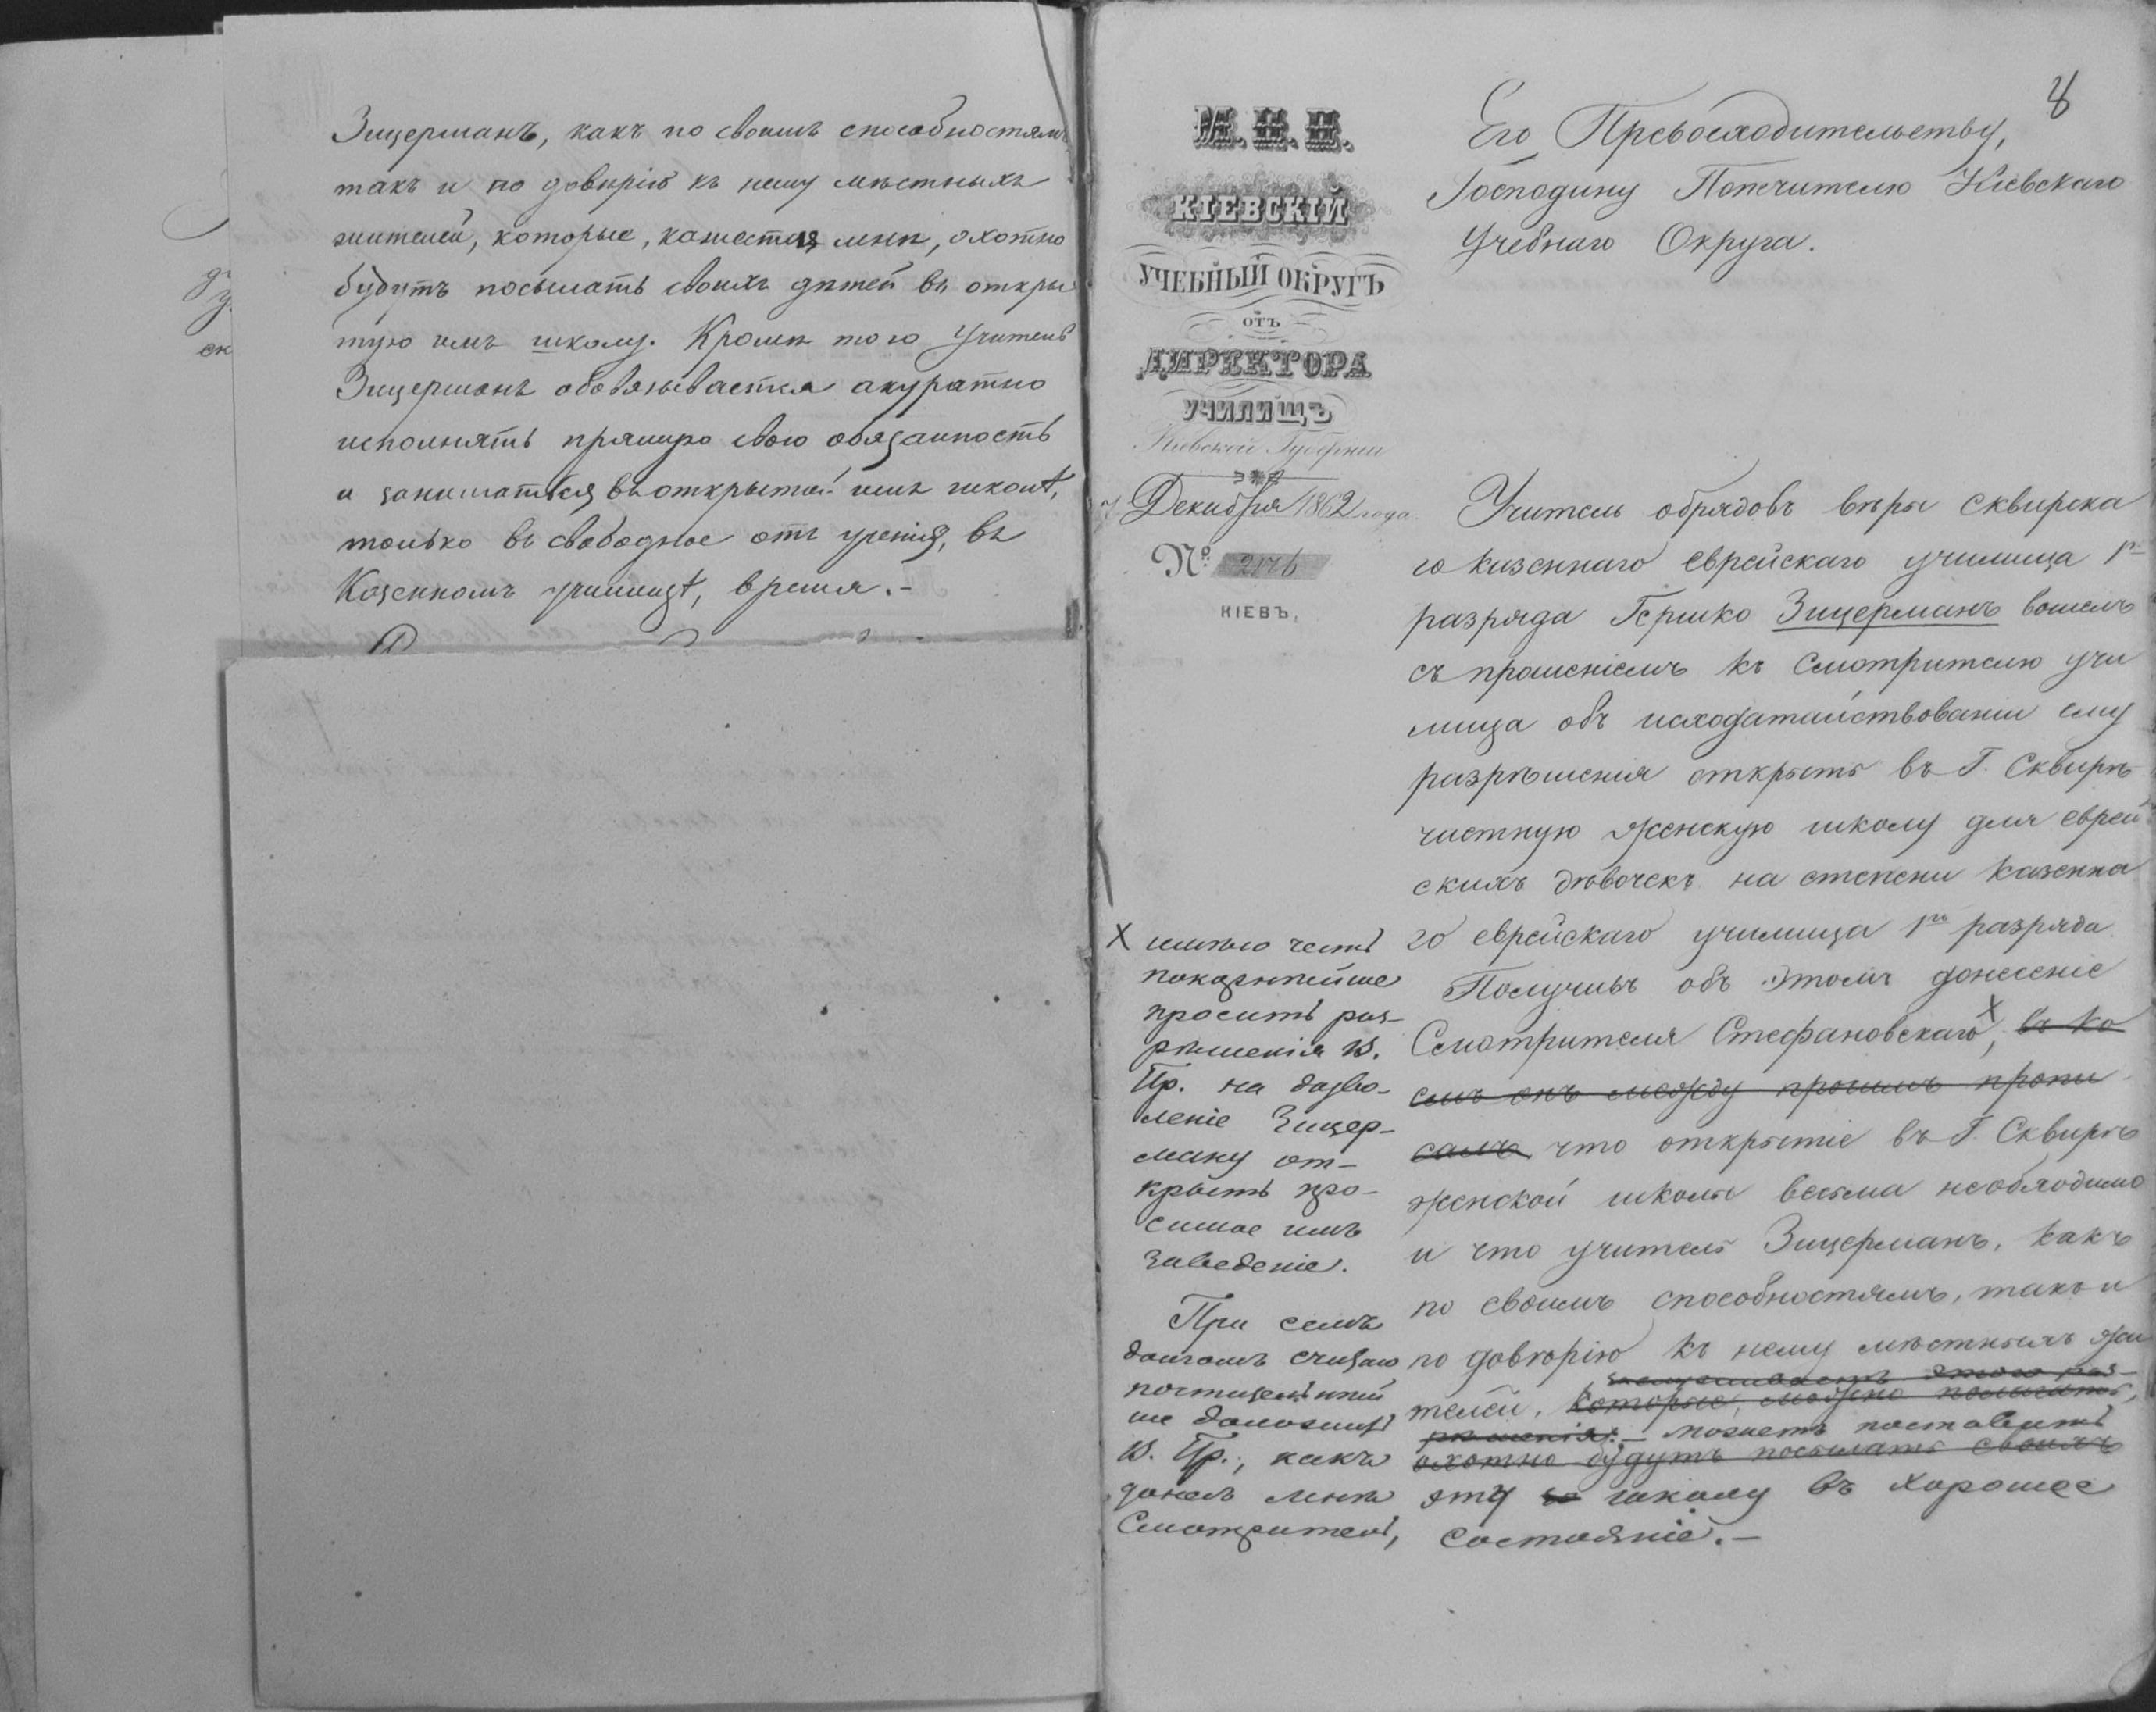 Зицерманъ, какъ по своимъ способностямъ
такъ и по довѣрію къ нему мѣстныхъ
жителей, которые, кажется мнѣ, охотно
будутъ посылать своихъ дѣтей въ откры
тую имъ школу. Кромѣ того Учитель
Зицерманъ обовязывается акуратно
исполнять прямую свою обязанность
и заниматься въ открытой имъ школѣ,
только въ свободное отъ ученія, въ
Козенномъ училищѣ, время.-
8
М.Н.П.
КІЕВСКІЙ
УЧЕБНЫЙ ОКРУГЪ
ОТЪ
ДИРЕКТОРА
УЧИЛИЩЪ
Кіевской Губерніи
7 Декабря 1862 года
№ 2176
КІЕВЪ.
Его Превосходительству,
Господину Попечителю Кіевскаго
Учебнаго Округа.
Учитель обрядовъ вѣры Сквирска
го казеннаго еврейскаго училища 1го
разряда Гершко Зицерманъ вошелъ
съ прошеніемъ къ Смотрителю учи
лища объ исходатайствованіи ему
разрѣшенія открыть въ Г. Сквирѣ
частную женскую школу для еврей
скихъ дѣвочекъ на степени казенна
го еврейскаго училища 1го разряда.
Получивъ объ этомъ донесеніе
Смотрителя Стефановскаго X, въ ко
емъ онъ между прочимъ пропи
салъ что открытіе въ Г. Сквирѣ
женской школы весьма необходимо
и что учитель Зицерманъ, какъ
по своимъ способностямъ, такъ и
по довѣрію къ нему мѣстныхъ жи
заслуживаетъ этого раз-
телей, которые, можно полагать,
рѣшенія:- можетъ поставить
охотно будутъ посылать своихъ
эту школу въ хорошее
состояніе.-
X имѣю честь
покорнѣйше
просить раз-
рѣшенія В.
Пр. на дозво-
леніе Зицер-
ману от-
крыть про-
симое имъ
заведеніе.
При семъ
долгомъ считаю
почтительнѣй
ше доложить
В. Пр., какъ
донесъ мнѣ
Смотритель,